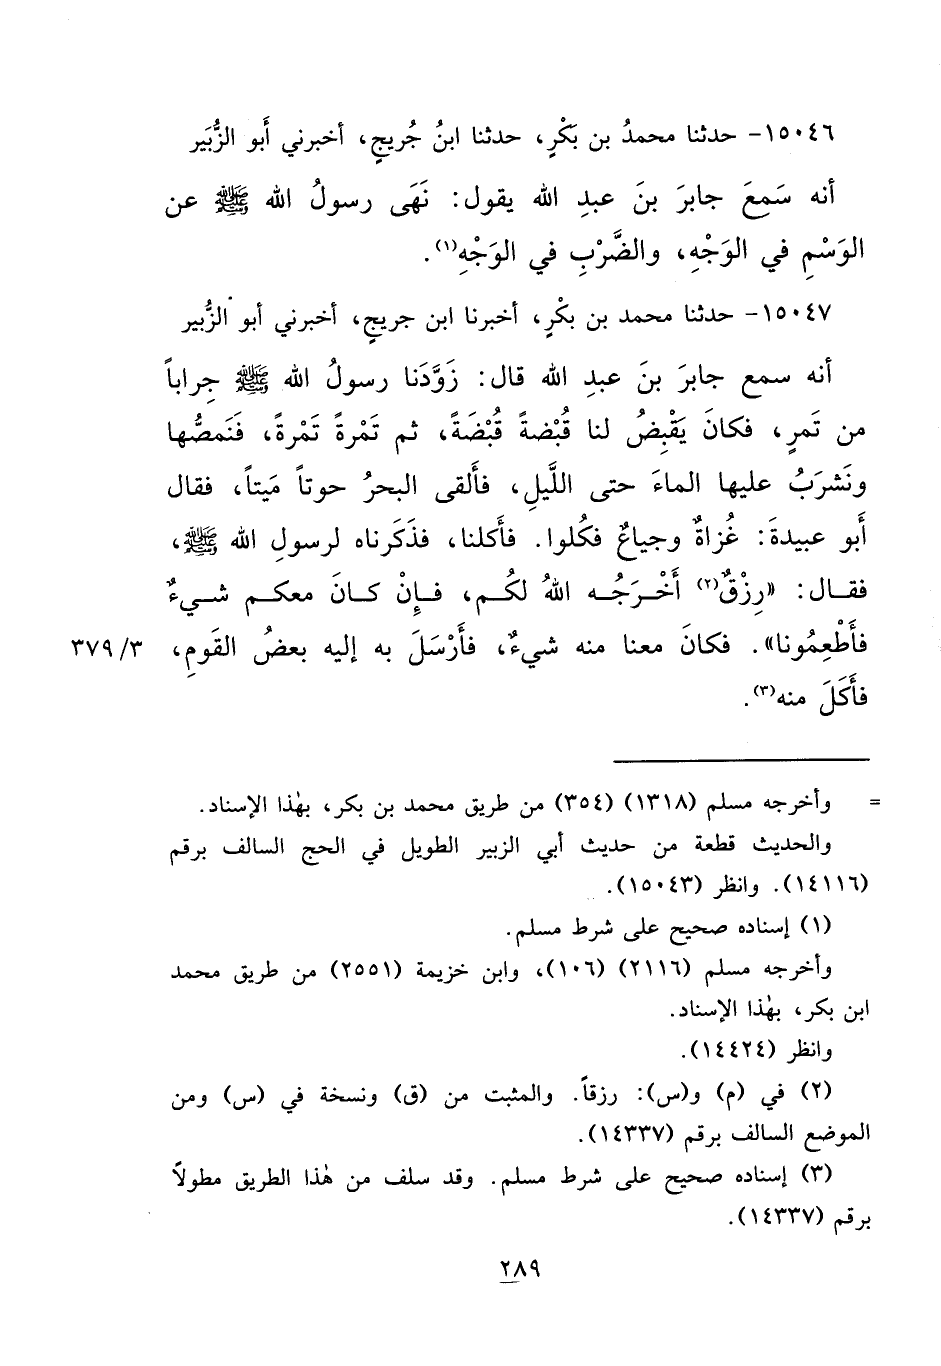 ١٥٠٤٦- حدثنا محمدُ بن بَكْرٍ، حدثنا ابنُ جُريجٍ، أخبرني أَبو الزُّبَير
أنه سَمِعَ جابرَ بنَ عبدِ الله يقول: نَهَى رسولُ الله ﷺ عن
الوَسْمِ في الوَجْهِ، والضَّرْبِ في الوَجْهِ(١).
١٥٠٤٧- حدثنا محمد بن بكْرٍ، أخبرنا ابن جريجٍ، أخبرني أبو الزُّبير
أنه سمع جابرَ بنَ عبدِ الله قال: زَوَّدَنا رسولُ الله ﷺ جِراباً
من تَمرٍ، فكانَ يَقْبِضُ لنا قُبْضةً قُبْضَةً، ثم تَمْرةً تَمْرةً، فَنَمصُّها
ونَشرَبُ عليها الماءَ حتى اللَّيلِ، فأَلقى البحرُ حوتاً مَيتاً، فقال
أَبو عبيدةَ: غُزاةٌ وجياعٌ فكُلوا. فأَكلنا، فذَكَرناه لرسولِ الله ﷺ،
فقال: «رِزْقٌ(٢) أَخْرَجُه اللهُ لكُم، فإِنْ كانَ معكم شيءٌ
فأَطْعِمُونا». فكانَ معنا منه شيءٌ، فأَرْسَلَ به إليه بعضُ القَومِ، ٣/ ٣٧٩
فأَكَلَ منه(٣).
= وأخرجه مسلم (١٣١٨) (٣٥٤) من طريق محمد بن بكر، بهٰذا الإسناد.
والحديث قطعة من حديث أبي الزبير الطويل في الحج السالف برقم
(١٤١١٦). وانظر (١٥٠٤٣).
(١) إسناده صحيح على شرط مسلم.
وأخرجه مسلم (٢١١٦) (١٠٦)، وابن خزيمة (٢٥٥١) من طريق محمد
ابن بكر، بهٰذا الإسناد.
وانظر (١٤٤٢٤).
(٢) في (م) و(س): رزقاً. والمثبت من (ق) ونسخة في (س) ومن
الموضع السالف برقم (١٤٣٣٧).
(٣) إسناده صحيح على شرط مسلم. وقد سلف من هٰذا الطريق مطولاً
برقم (١٤٣٣٧).
٢٨٩